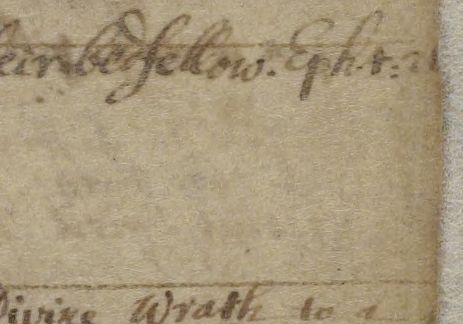 their bedfellow. Eph. 5.
Divine Wrath to a